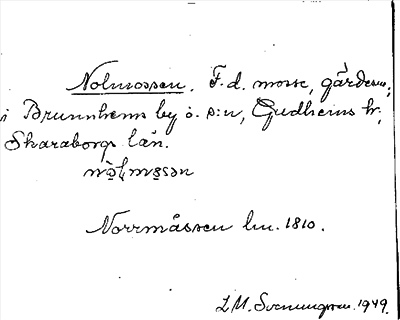 Nolmossen. F. d. mosse, gärdesn.;
i Brunnhems by o. s:n, Gudhems hd,
Skaraborgs län.
Norrmåssen lm. 1810.
L M. Svenungsson. 1949.